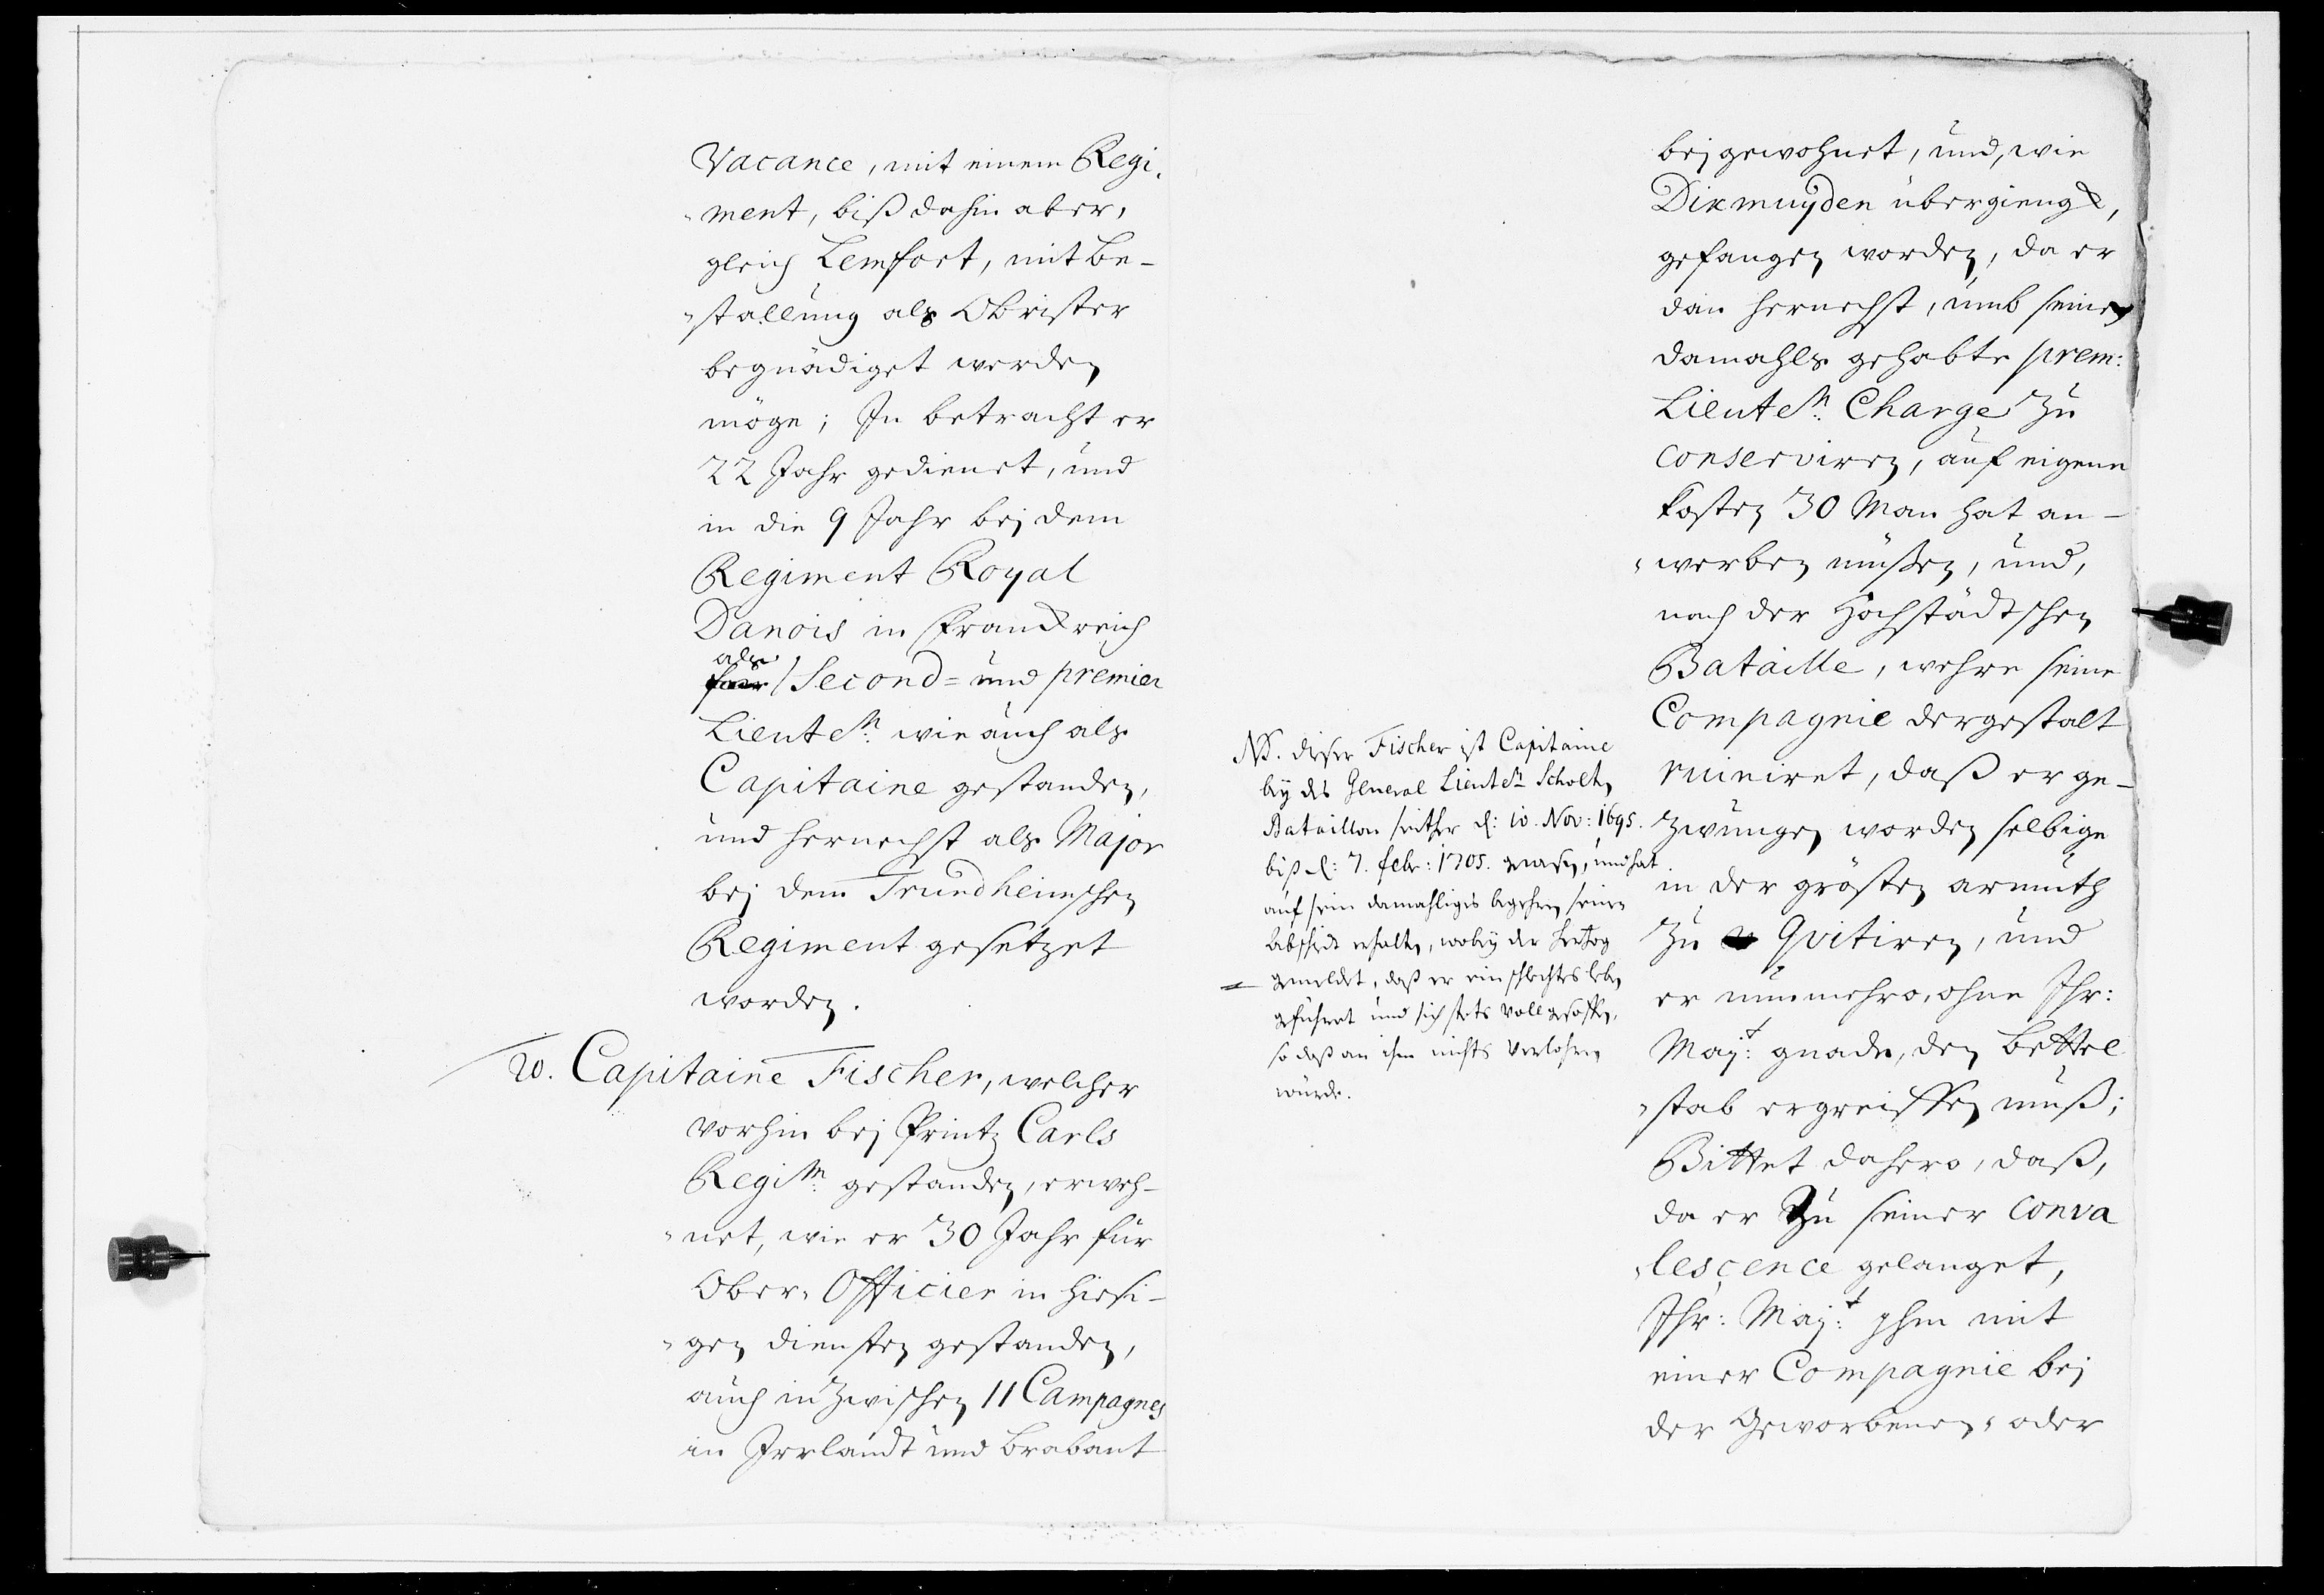 Vacance, mit einem Regi-
ment, biß dahin aber,
gleich Lemfort, mit Be-
stallung als Obrister
begnädiget werden
möge; In betracht er
22 Jahr gedienet, und
in die 9 Jahr bej dem
Regiment Royal
Danois in Franckreich
als
Second- und premier
Lieutetn: wie auch als
Capitaine gestanden,
und hernechst als Major
bej dem Trundheimschen
Regiment gesetzet
worden.
20. Capitaine Fischer, welcher
vorhin bej Printz Carls
Regitm: gestanden, erweh-
net, wie er 30 Jahr für
Ober-Officier in hiesi-
gen diensten gestanden,
auch in zwischen 11 Campagnes
in Irrlandt und Brabant
NB. dieser Fischer ist Capitaine
bey des General Lieutetn Scholten
Bataillon seither d: 10. Nov: 1695.
biß d: 7. febr: 1705. gewesen, und hat
auf sein damahliges begehren seinen
Abscheidt erhalten, wobey der Hertzog
gemeldet, daß er ein schlechtes leben
geführet und sich stets voll gesoffen,
so daß an ihm nichts verlohren
würde.
bej gewohnet, und, wie
Dixmuyden übergieng,
gefangen worden, da er
dan hernechst, umb seine
damahls gehabte prem:
Lieutetn: Charge zu
conserviren, auf eigene
Kosten 30 Man hat an-
werben müßen, und,
nach der Hochstädtschen
Bataille, wehre seine
Compagnie dergestalt
ruiniret, daß er ge-
zwungen worden selbige
in der grösten armuth
zu Qvitiren, und
er nunmehro, ohne Ihr:
Majt: gnade, den Bettel
stab ergreiffen muß;
Bittet dahero, daß,
da er zu seiner Conva
lescence gelanget,
Ihr: Majt: ihm mit
einer Compagnie bej
der Geworbenen, oder